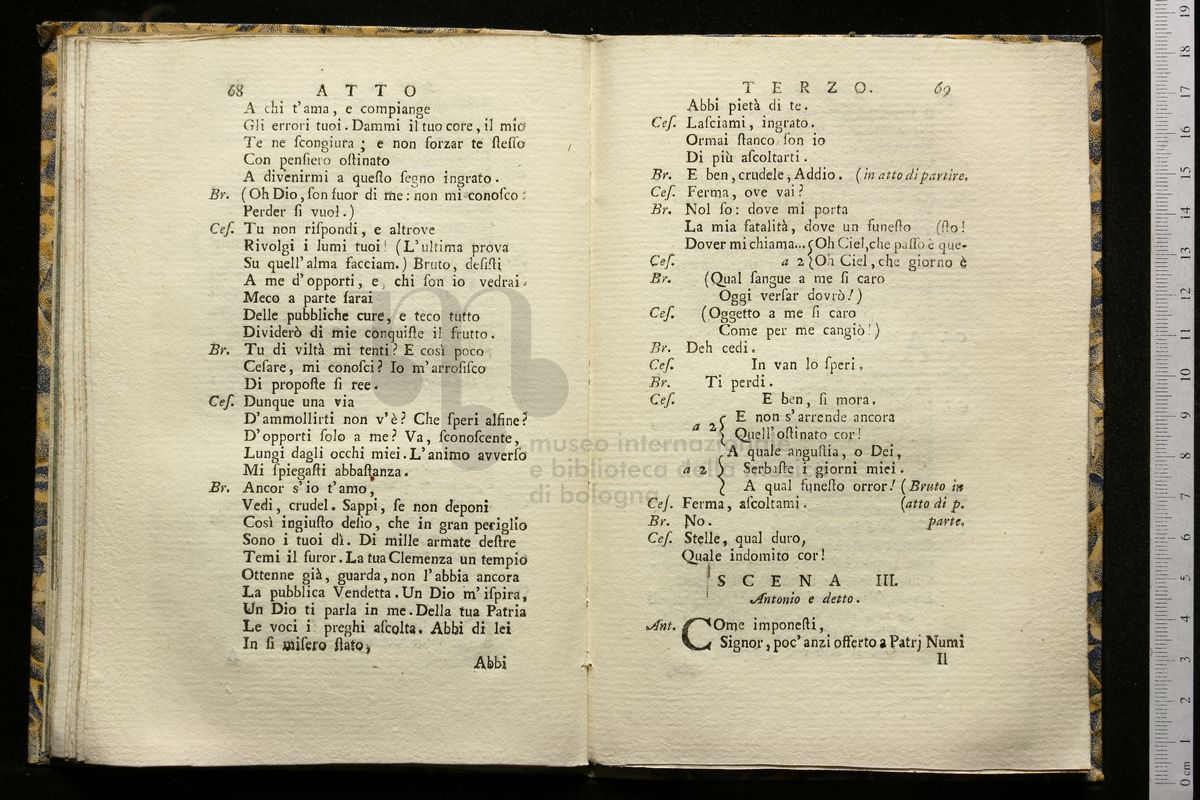 68 ATTO
A chi t'ama, e compiange
Gli errori tuoi. Dammi il tuo core, il mio
Te ne ſcongiura; e non forzar te ſteſſo
Con penſiero oſtinato
A divenirmi a queſto ſegno ingrato.
Br. (Oh Dio, ſon fuor di me: non mi conoſco:
Perder ſi vuol.)
Ceſ. Tu non riſpondi, e altrove
Rivolgi i lumi tuoi! (L'ultima prova
Su quell'alma facciam.) Bruto, deſiſti
A me d'opporti, e chi ſon io vedrai.
Meco a parte ſarai
Delle pubbliche cure, e teco tutto
Dividerò di mie conquiſte il frutto.
Br. Tu di viltà mi tenti? E così poco
Ceſare, mi conoſci? Io m'arroſſiſco
Di propoſte ſi ree.
Ceſ. Dunque una via
D'ammollirti non v'è? Che ſperi alfine?
D'opporti ſolo a me? Va, ſconoſcente,
Lungi dagli occhi miei. L'animo avverſo
Mi ſpiegaſti abbaſtanza.
Br. Ancor s'io t'amo,
Vedi, crudel. Sappi, ſe non deponi
Così ingiuſto deſio, che in gran periglio
Sono i tuoi dì. Di mille armate deſtre
Temi il furor. La tua Clemenza un tempio
Ottenne già, guarda, non l'abbia ancora
La pubblica Vendetta. Un Dio m'iſpira,
Un Dio ti parla in me. Della tua Patria
Le voci i preghi aſcolta. Abbi di lei
In ſi miſero ſtato,
Abbi
TERZO. 69
Abbi pietà di te.
Ceſ. Laſciami, ingrato.
Ormai ſtanco ſon io
Di più aſcoltarti.
Br. E ben, crudele, Addio. (in atto di partire.
Ceſ. Ferma, ove vai?
Br. Nol ſo: dove mi porta
La mia fatalità, dove un funeſto (ſto!
Dover mi chiama... {Oh Ciel, che paſſo è que-
Ceſ. a 2 {Oh Ciel, che giorno è
Br. (Qual ſangue a me ſi caro
Oggi verſar dovrò!)
Ceſ. (Oggetto a me ſi caro
Come per me cangiò!)
Br. Deh cedi.
Ceſ. In van lo ſperi.
Br. Ti perdi.
Ceſ. E ben, ſi mora.
a 2 { E non s'arrende ancora
Quell'oſtinato cor!
A quale anguſtia, o Dei,
a 2 { Serbaſte i giorni miei.
A qual funeſto orror! (Bruto in
Ceſ. Ferma, aſcoltami. (atto di p.
Br. No. parte.
Ceſ. Stelle, qual duro,
Quale indomito cor!
SCENA III.
Antonio e detto.
Ant. COme imponeſti,
Signor, poc'anzi offerto a Patrj Numi
Il
museo internazionale
e biblioteca della
di bologna
0 cm 1 2 3 4 5 6 7 8 9 10 11 12 13 14 15 16 17 18 19